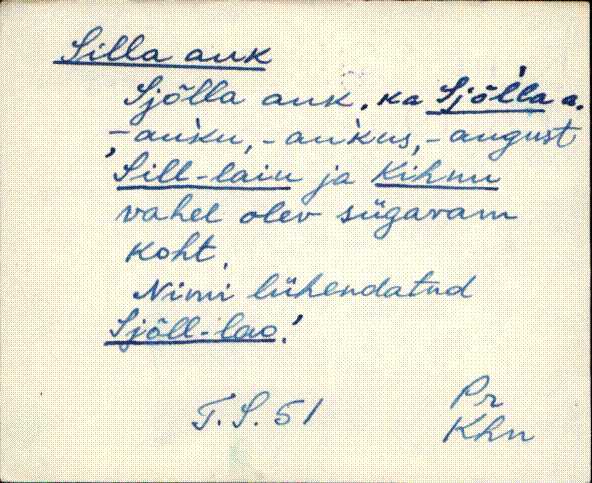 Silla auk
Sjõlla auk, ka Sjõ'lla a.
, -au'ku, -au'kus, -august
Sill-laiu ja Kihnu
vahel olev sügavam
koht.
Nimi lühendatud
Sjõll-lao!
T.S. 51
Pr
Khn